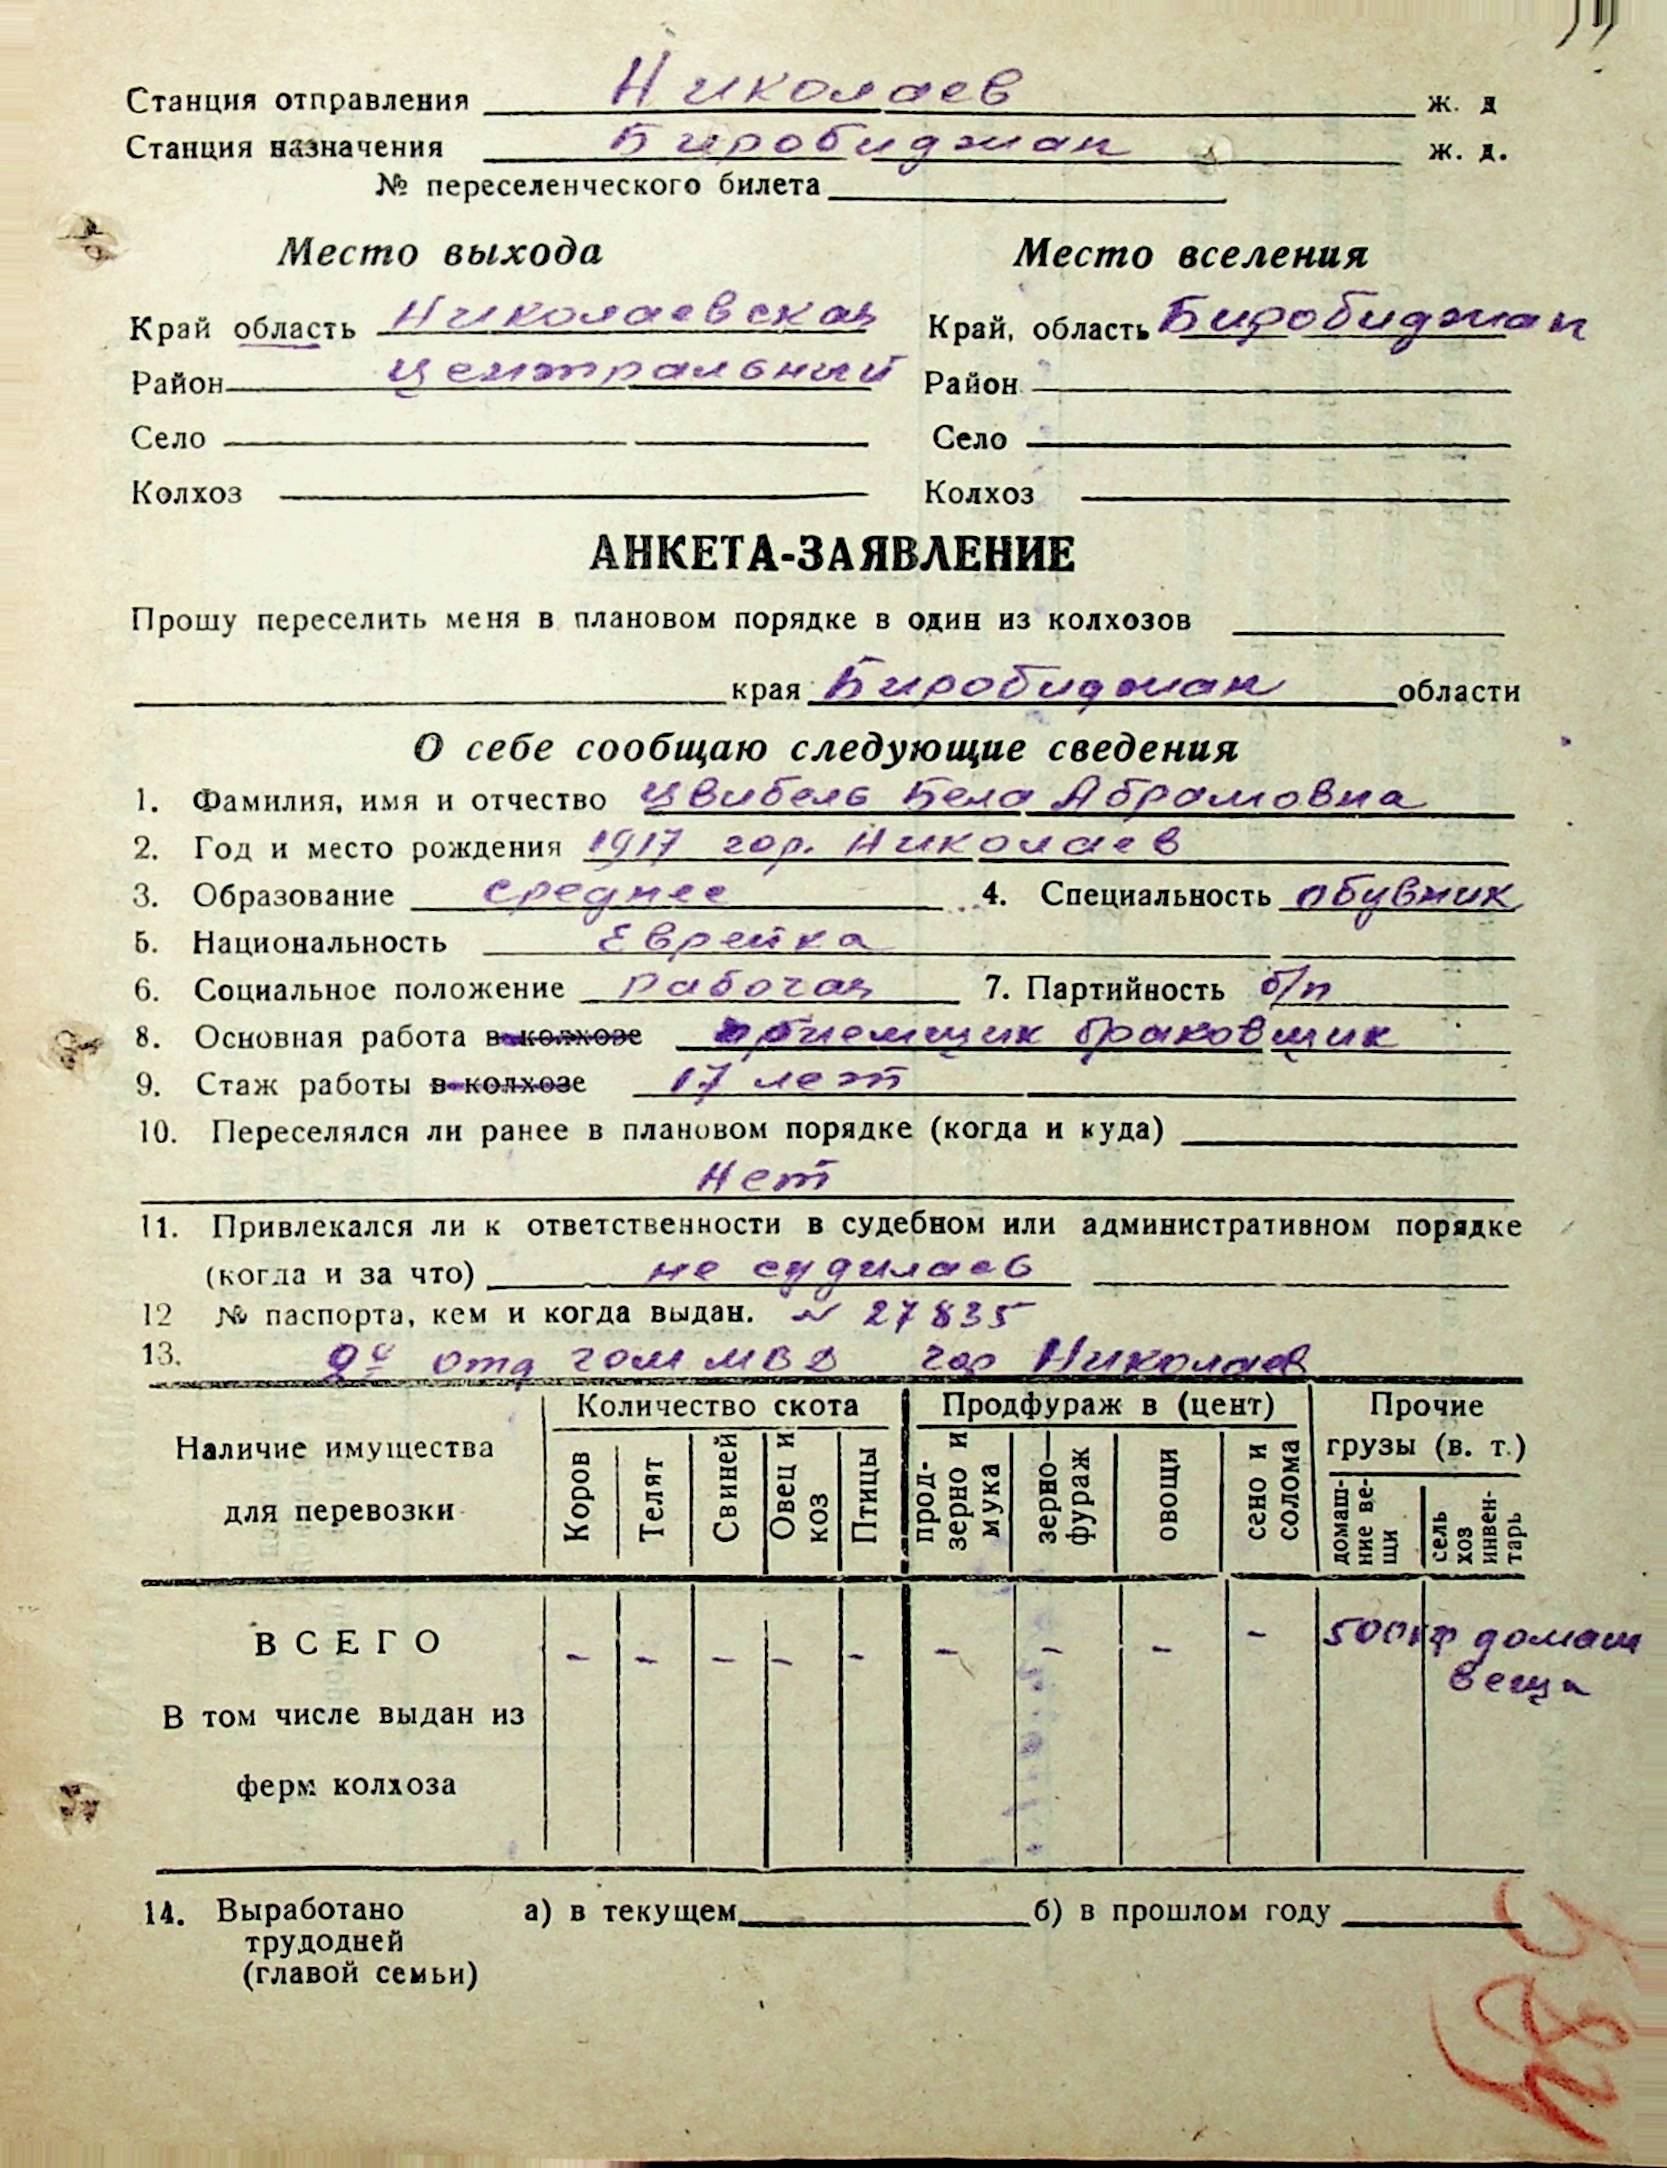 Станция отправления Николаев ж. д
Станция назначения Биробиджан ж. д.
№ переселенческого билета
Место выхода Место вселения
Край область Николаевская Край, область Биробиджан
Район Центральный Район
Село Село
Колхоз Колхоз
АНКЕТА-ЗАЯВЛЕНИЕ
Прошу переселить меня в плановом порядке в один из колхозов
края Биробиджан области
О себе сообщаю следующие сведения
1. Фамилия, имя и отчество Цвибель Бела Абрамовна
2. Год и место рождения 1917 гор. Николаев
3. Образование среднее 4. Специальность обувник
5. Национальность Еврейка
6. Социальное положение Рабочая 7. Партийность б/п
8. Основная работа в колхозе приемщик браковщик
9. Стаж работы в колхозе 17 лет
10. Переселялся ли ранее в плановом порядке (когда и куда)
Нет
11. Привлекался ли к ответственности в судебном или административном порядке
(когда и за что) не судилась
12 № паспорта, кем и когда выдан. № 27835
13. отд гом МВД гор Николаев
Количество скота Продфураж в (цент) Прочие
Наличие имущества грузы (в. т.)
для перевозки Коров Телят Свиней Овец и коз Птицы прод-зерно и мука зерно-фураж овощи сено и солома домаш-ние ве-щи сель хоз инвен-тарь
ВСЕГО - - - - - - - - - 500кг домаш
веща
В том числе выдан из
ферм колхоза
14. Выработано а) в текущем б) в прошлом году
трудодней
(главой семьи)